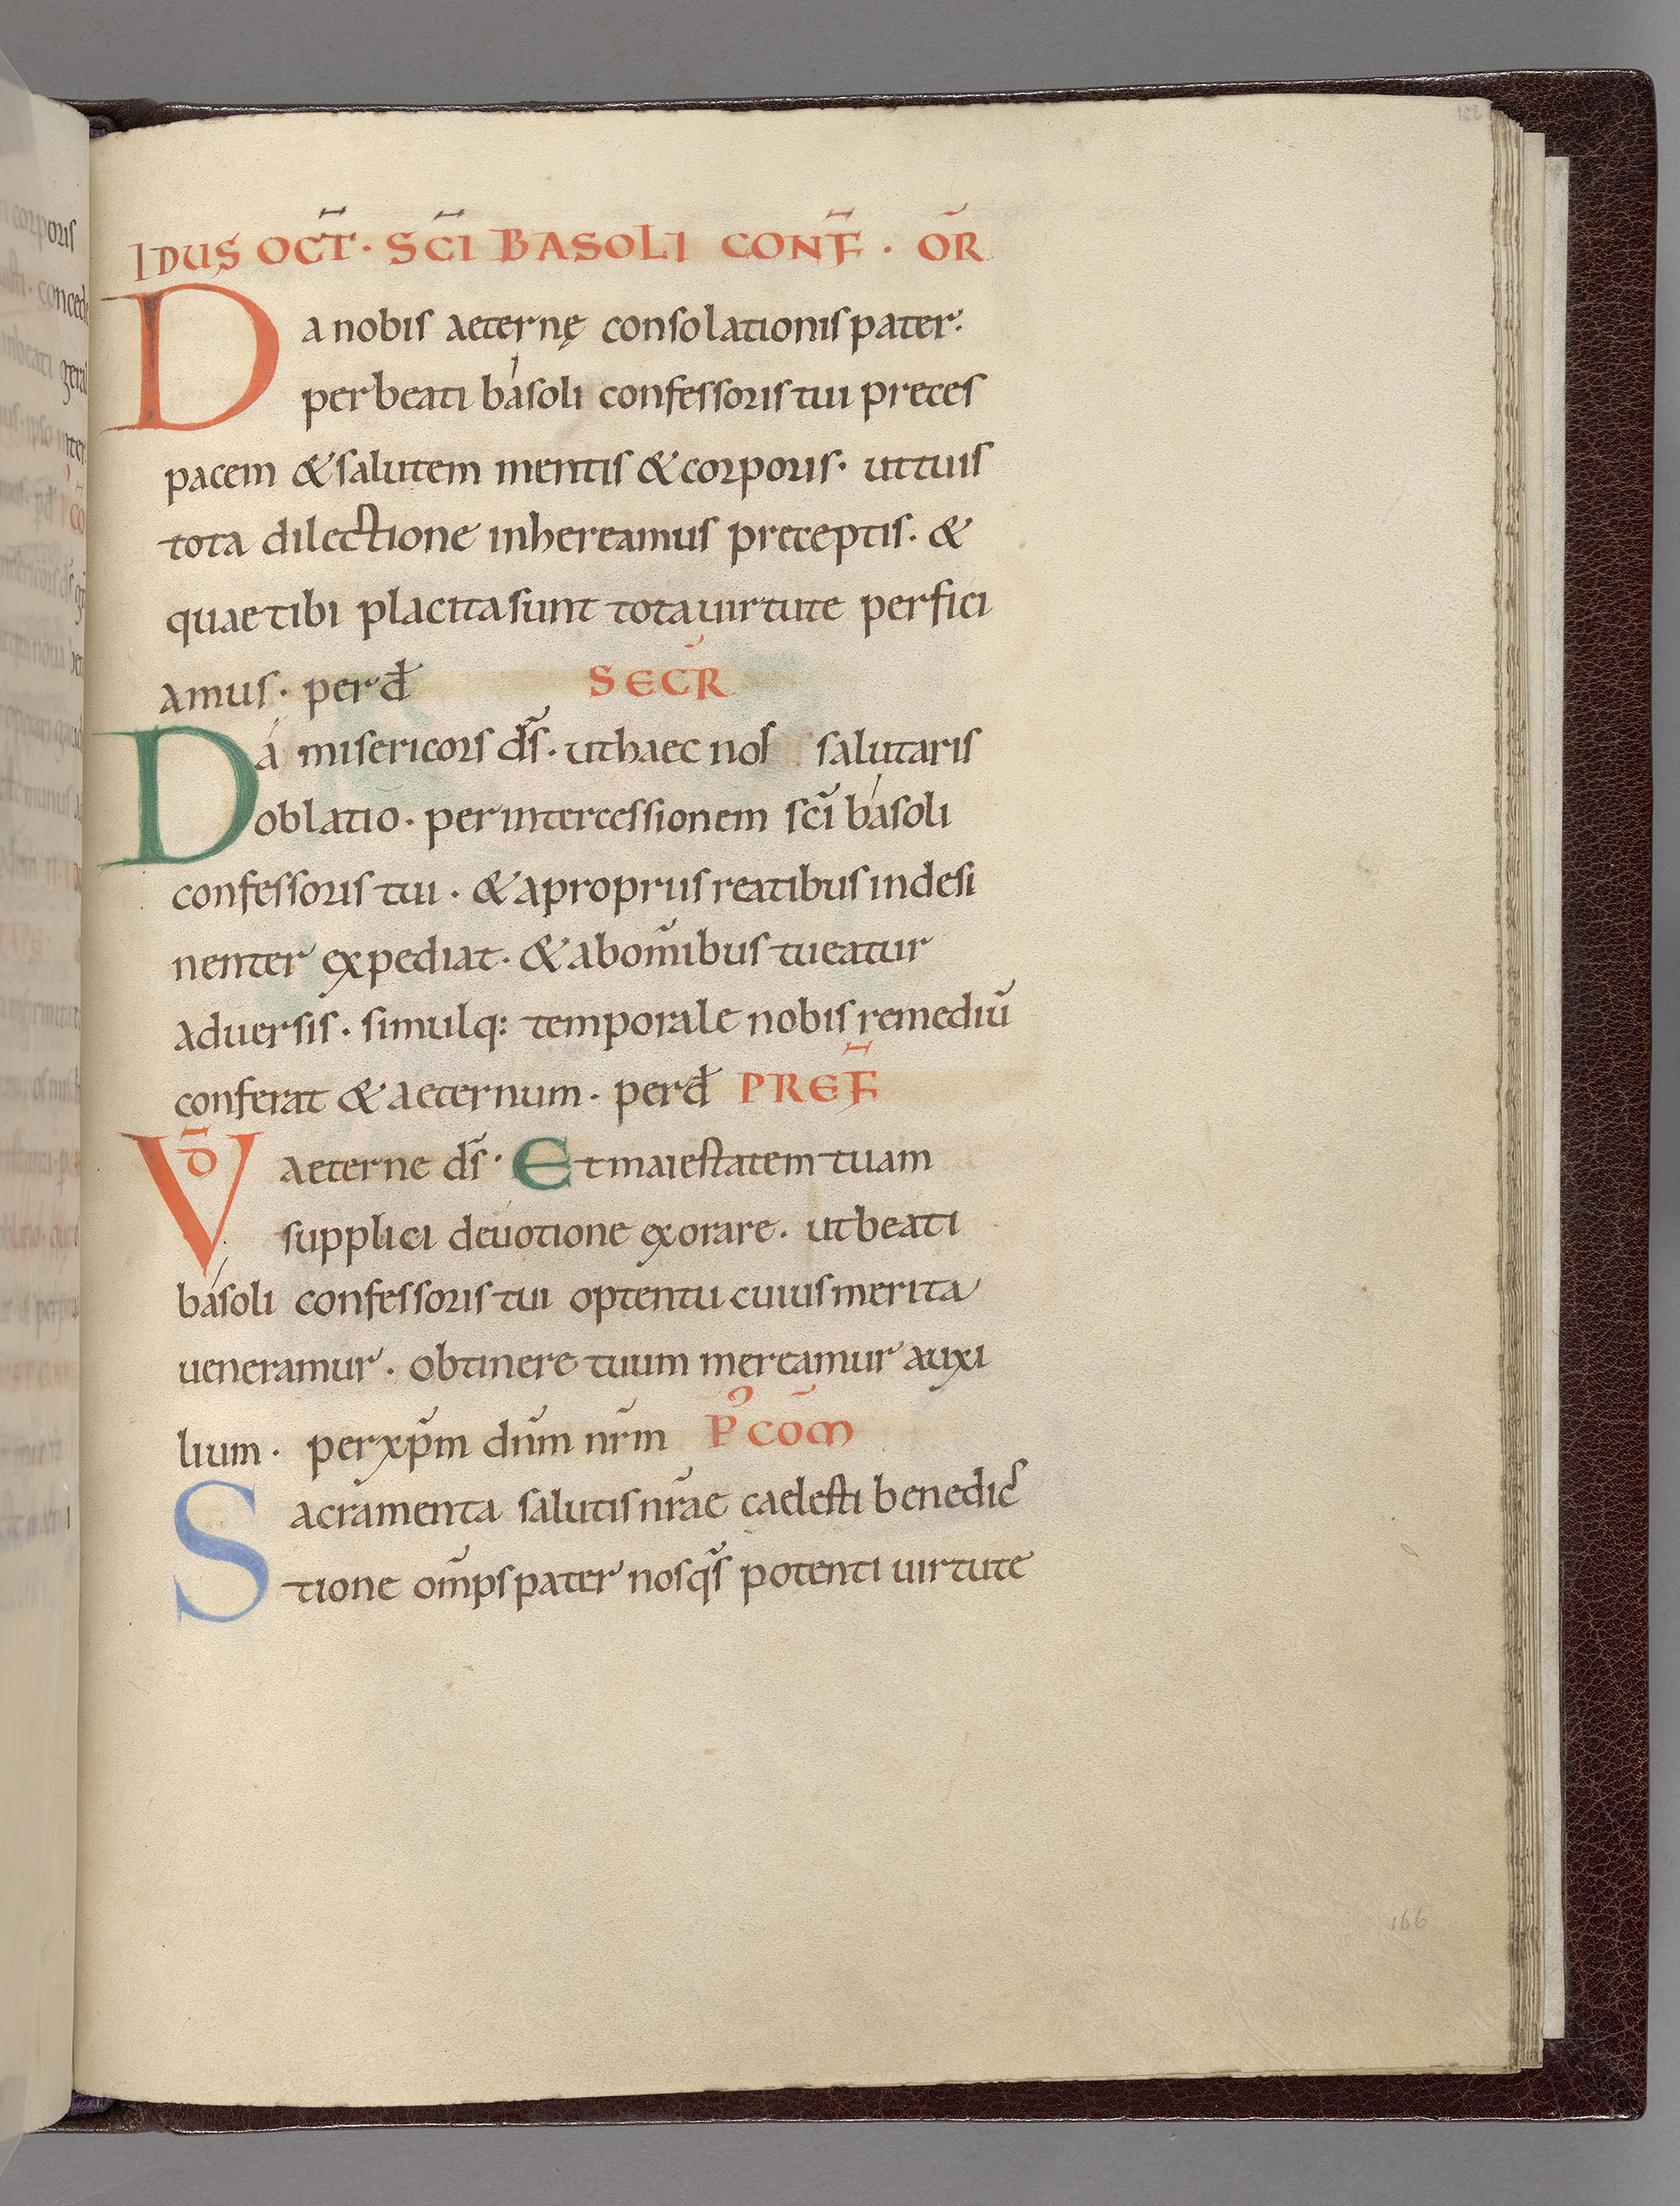 IDUS OCT̄· SC̄I BASOLI CONF̄· OR̄
Da nobis aeternę consolationis pater·
per beati básoli confessoris tui preces
pacem & salutem mentis & corporis· ut tuis
tota dilectione inhereamus preceptis· &
quae tibi placita sunt tota uirtute perfici
amus· per đ SECR̄
Dá misericors dс̄· ut haec nos salutaris
oblatio· per intercessionem sc̄i básoli
confessoris tui· & a propriis reatibus indesi
nenter expediat· & ab om̄ibus tueatur
aduersis· simulq: temporale nobis remediū
conferat & aeternum· per đ PREF̄
VD̄ aeterne ds̄· Et maiestatem tuam
supplici deuotione exorare· ut beati
básoli confessoris tui optentu cuius merita
ueneramur· obtinere tuum mereamur auxi
lium· per xp̄m dn̄m nr̄m P' CŌM
Sacramenta salutis nr̄ae caelesti benedic
tione om̄ps pater nos qs̄ potenti uirtute
166